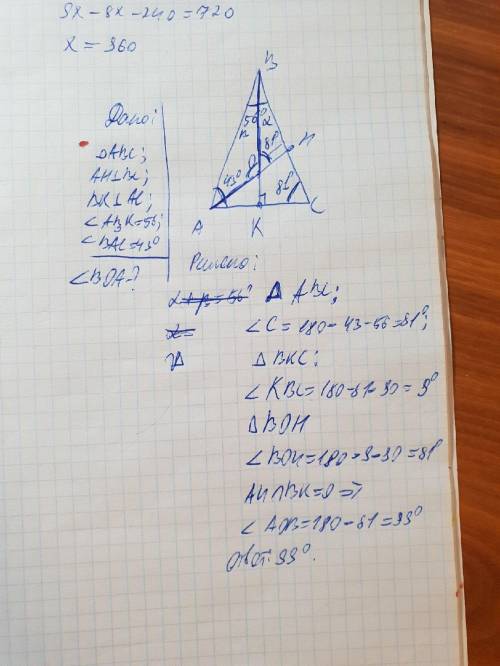 9x - 8x - 240 = 720
x = 960
Дано:
△ABC;
AH⊥BC;
BK⊥AC;
∠ABK=56;
∠BAC=43°
∠BOA-?
B
56°
α
β
81°
H
O
43°
81°
A
K
C
Решение:
α+β=56° △ ABC;
α= ∠C = 180 - 43 - 56 = 81°;
△ △BKC:
∠KBC = 180 - 81 - 90 = 9°
△BOH
∠BOH = 180 - 9 - 90 = 81°
AH∩BK=O ⇒
∠AOB = 180 - 81 = 99°
Ответ: 99°.